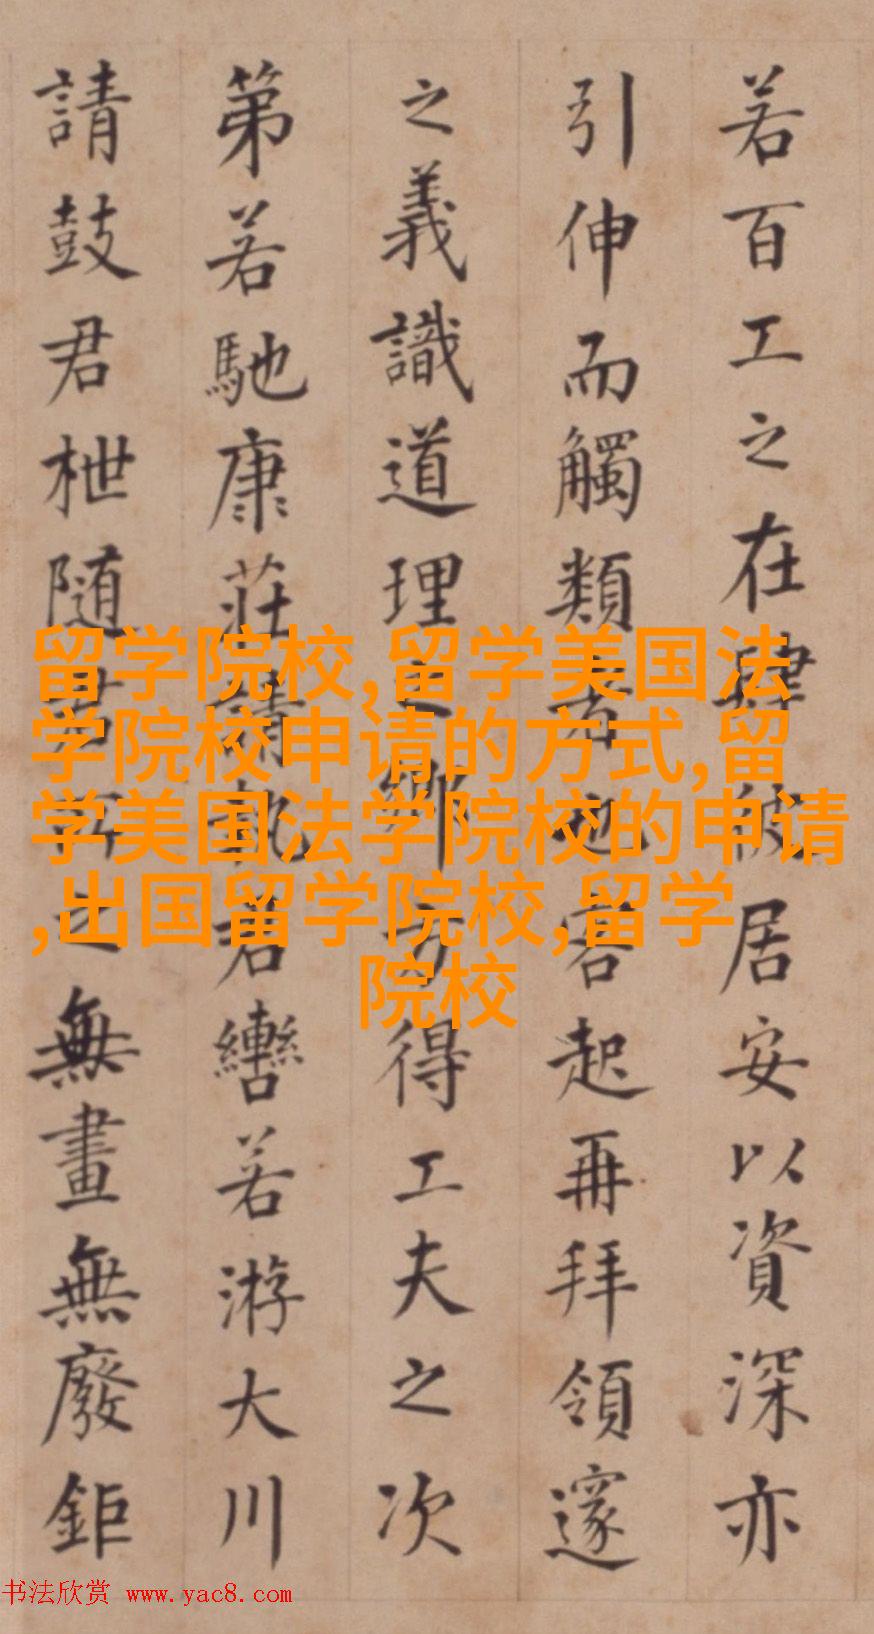 若百工之在肆彼居安以資深亦
引伸而觸類者也客起再拜領邃
之義識道理之鄉方得工夫之次
第若馳康莊請執君轡若游大川
請鼓君枻随君所之無畫無廢鉅
留学院校,留学美国法
学院校申请的方式,留
学美国法学院校的申请
,出国留学院校,留学
院校
书法欣赏 www.yac8.com